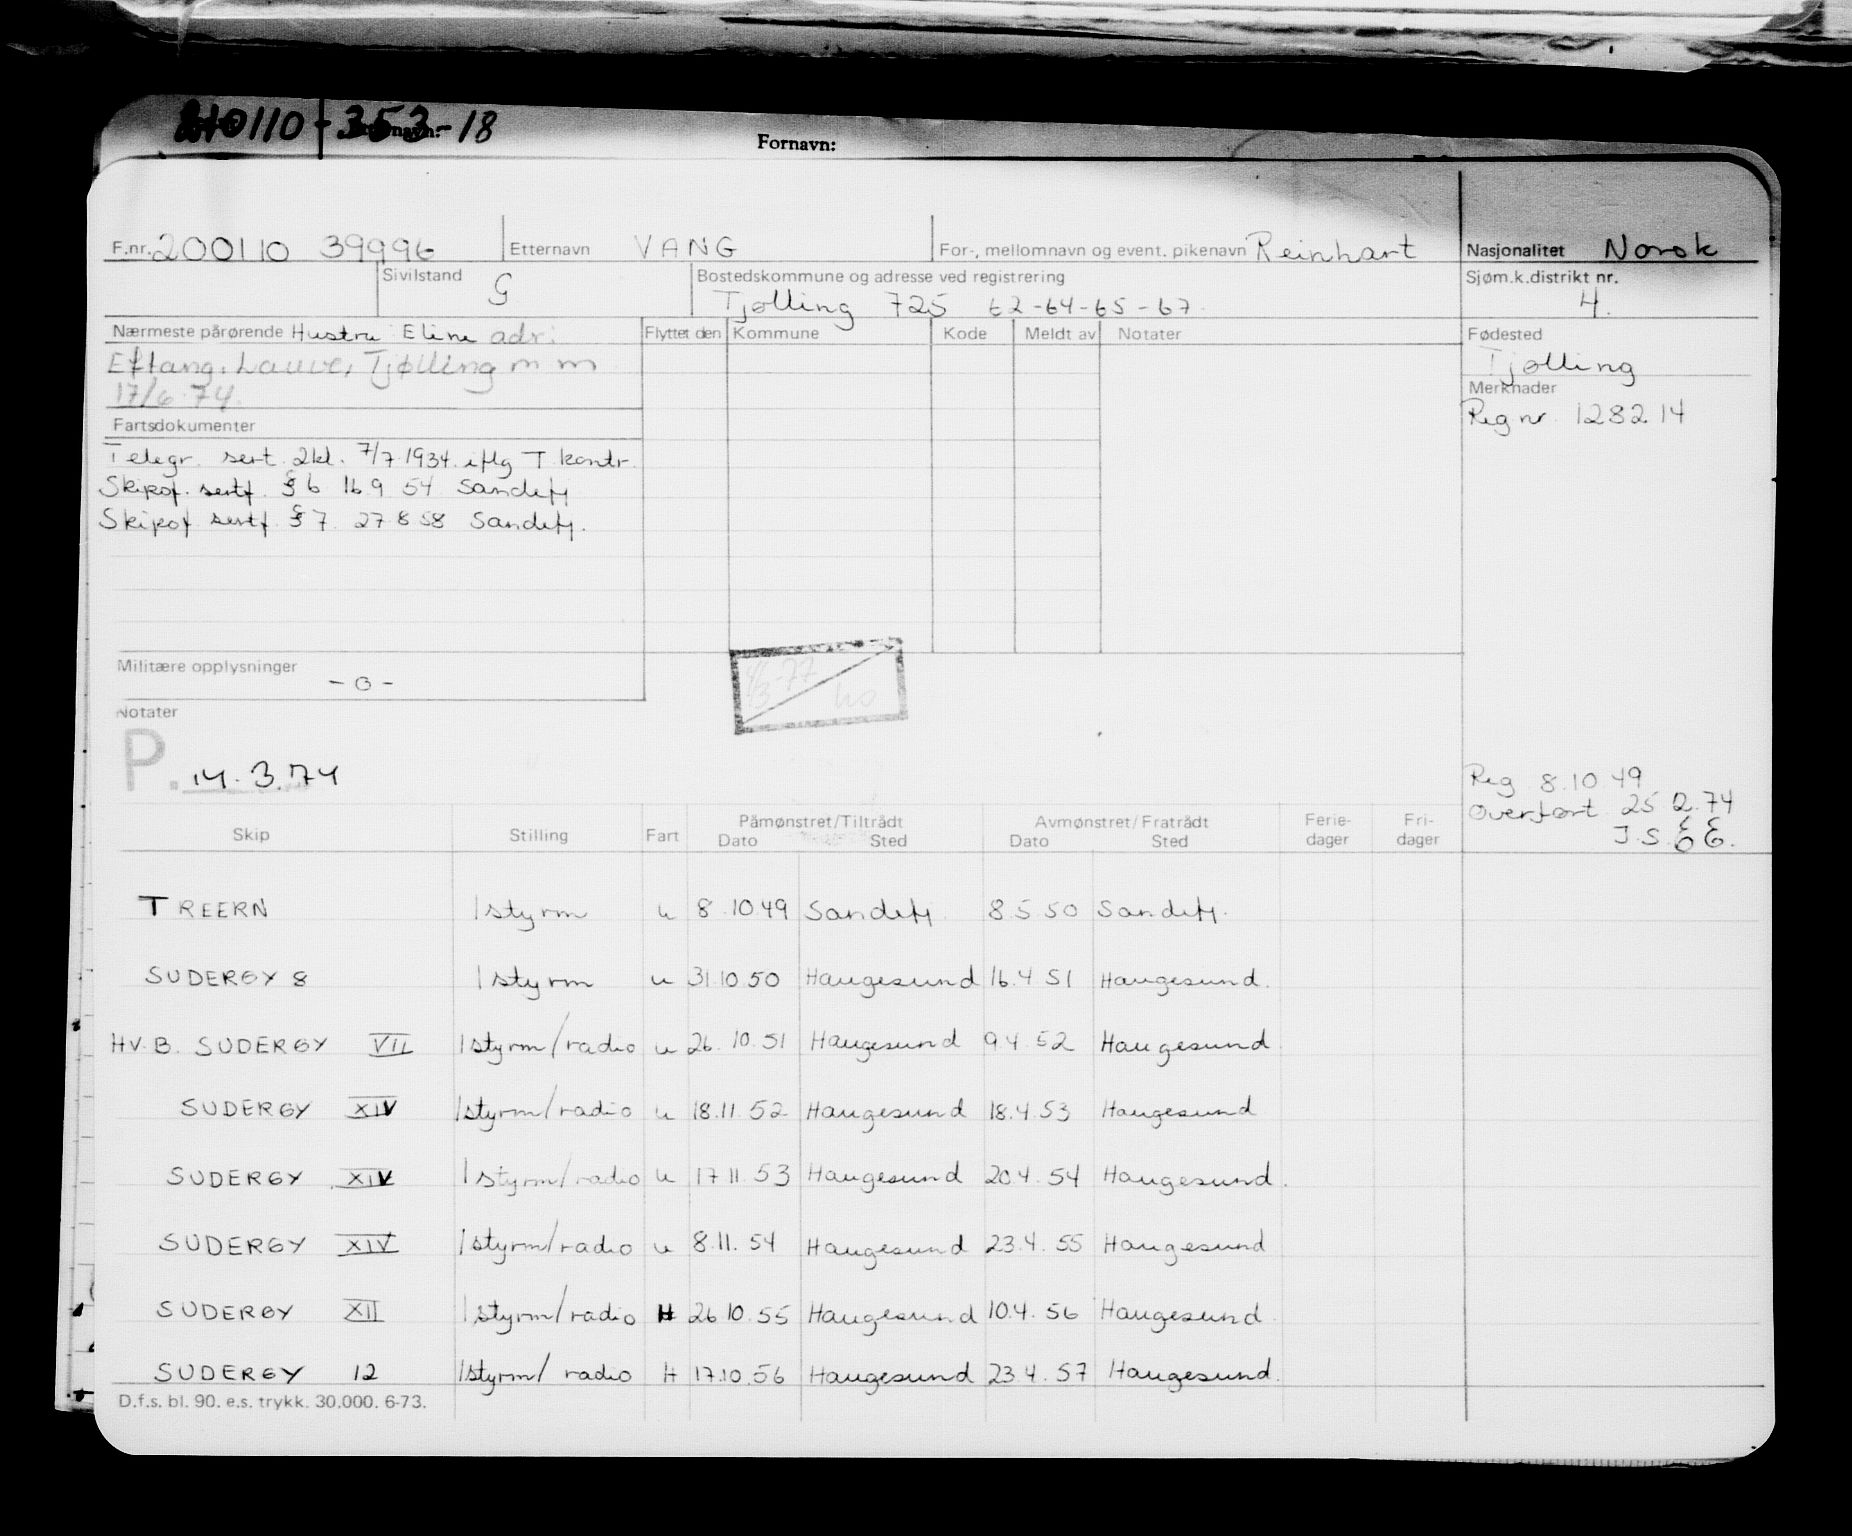 110 - 353 - 18
Fornavn:
F.nr. 200110 39996 Etternavn VANG For-, mellomnavn og event. pikenavn Reinhart Nasjonalitet Norsk
Sivilstand G Bostedskommune og adresse ved registrering Sjøm.k.distrikt nr.
Tjølling 725 62-64-65-67. 4.
Nærmeste pårørende Hustru Eline adr: Flyttet den Kommune Kode Meldt av Notater Fødested
Eftang, Lauve, Tjølling m m Tjølling
17/6.74. Merknader
Reg nr. 128214
Fartsdokumenter
Telegr. sert. 2kl. 7/7.1934. iflg T. kontr.
Skipsf. sertf. § 6 16 9 54 Sandefj
Skipsf. sertf. § 7. 27 8 58 Sandefj.
Militære opplysninger
- o -
Notater
P. 14.3.74
Reg 8.10 49
Overført 25 2.74
Skip Stilling Fart Påmønstret/Tiltrådt Avmønstret/Fratrådt Ferie- Fri-
Dato Sted Dato Sted dager dager
TREERN 1 styrm u 8.10.49 Sandefj. 8.5.50 Sandefj.
SUDERØY 8 1 styrm u 31.10.50 Haugesund 16.4 51 Haugesund.
HV. B. SUDERØY VII 1 styrm/radio u 26.10.51 Haugesund 9.4.52 Haugesund
SUDERØY XIV 1 styrm/radio u 18.11.52 Haugesund 18.4.53 Haugesund
SUDERØY XIV 1 styrm/radio u 17 11.53 Haugesund 20.4.54 Haugesund.
SUDERØY XIV 1 styrm/radio u 8.11.54 Haugesund 23.4.55 Haugesund
SUDERØY XII 1 styrm/radio H 26.10.55 Haugesund 10.4.56 Haugesund
SUDERØY 12 1 styrm/radio H 17.10.56 Haugesund 23.4.57 Haugesund.
D.f.s. bl. 90. e.s. trykk. 30.000. 6-73.